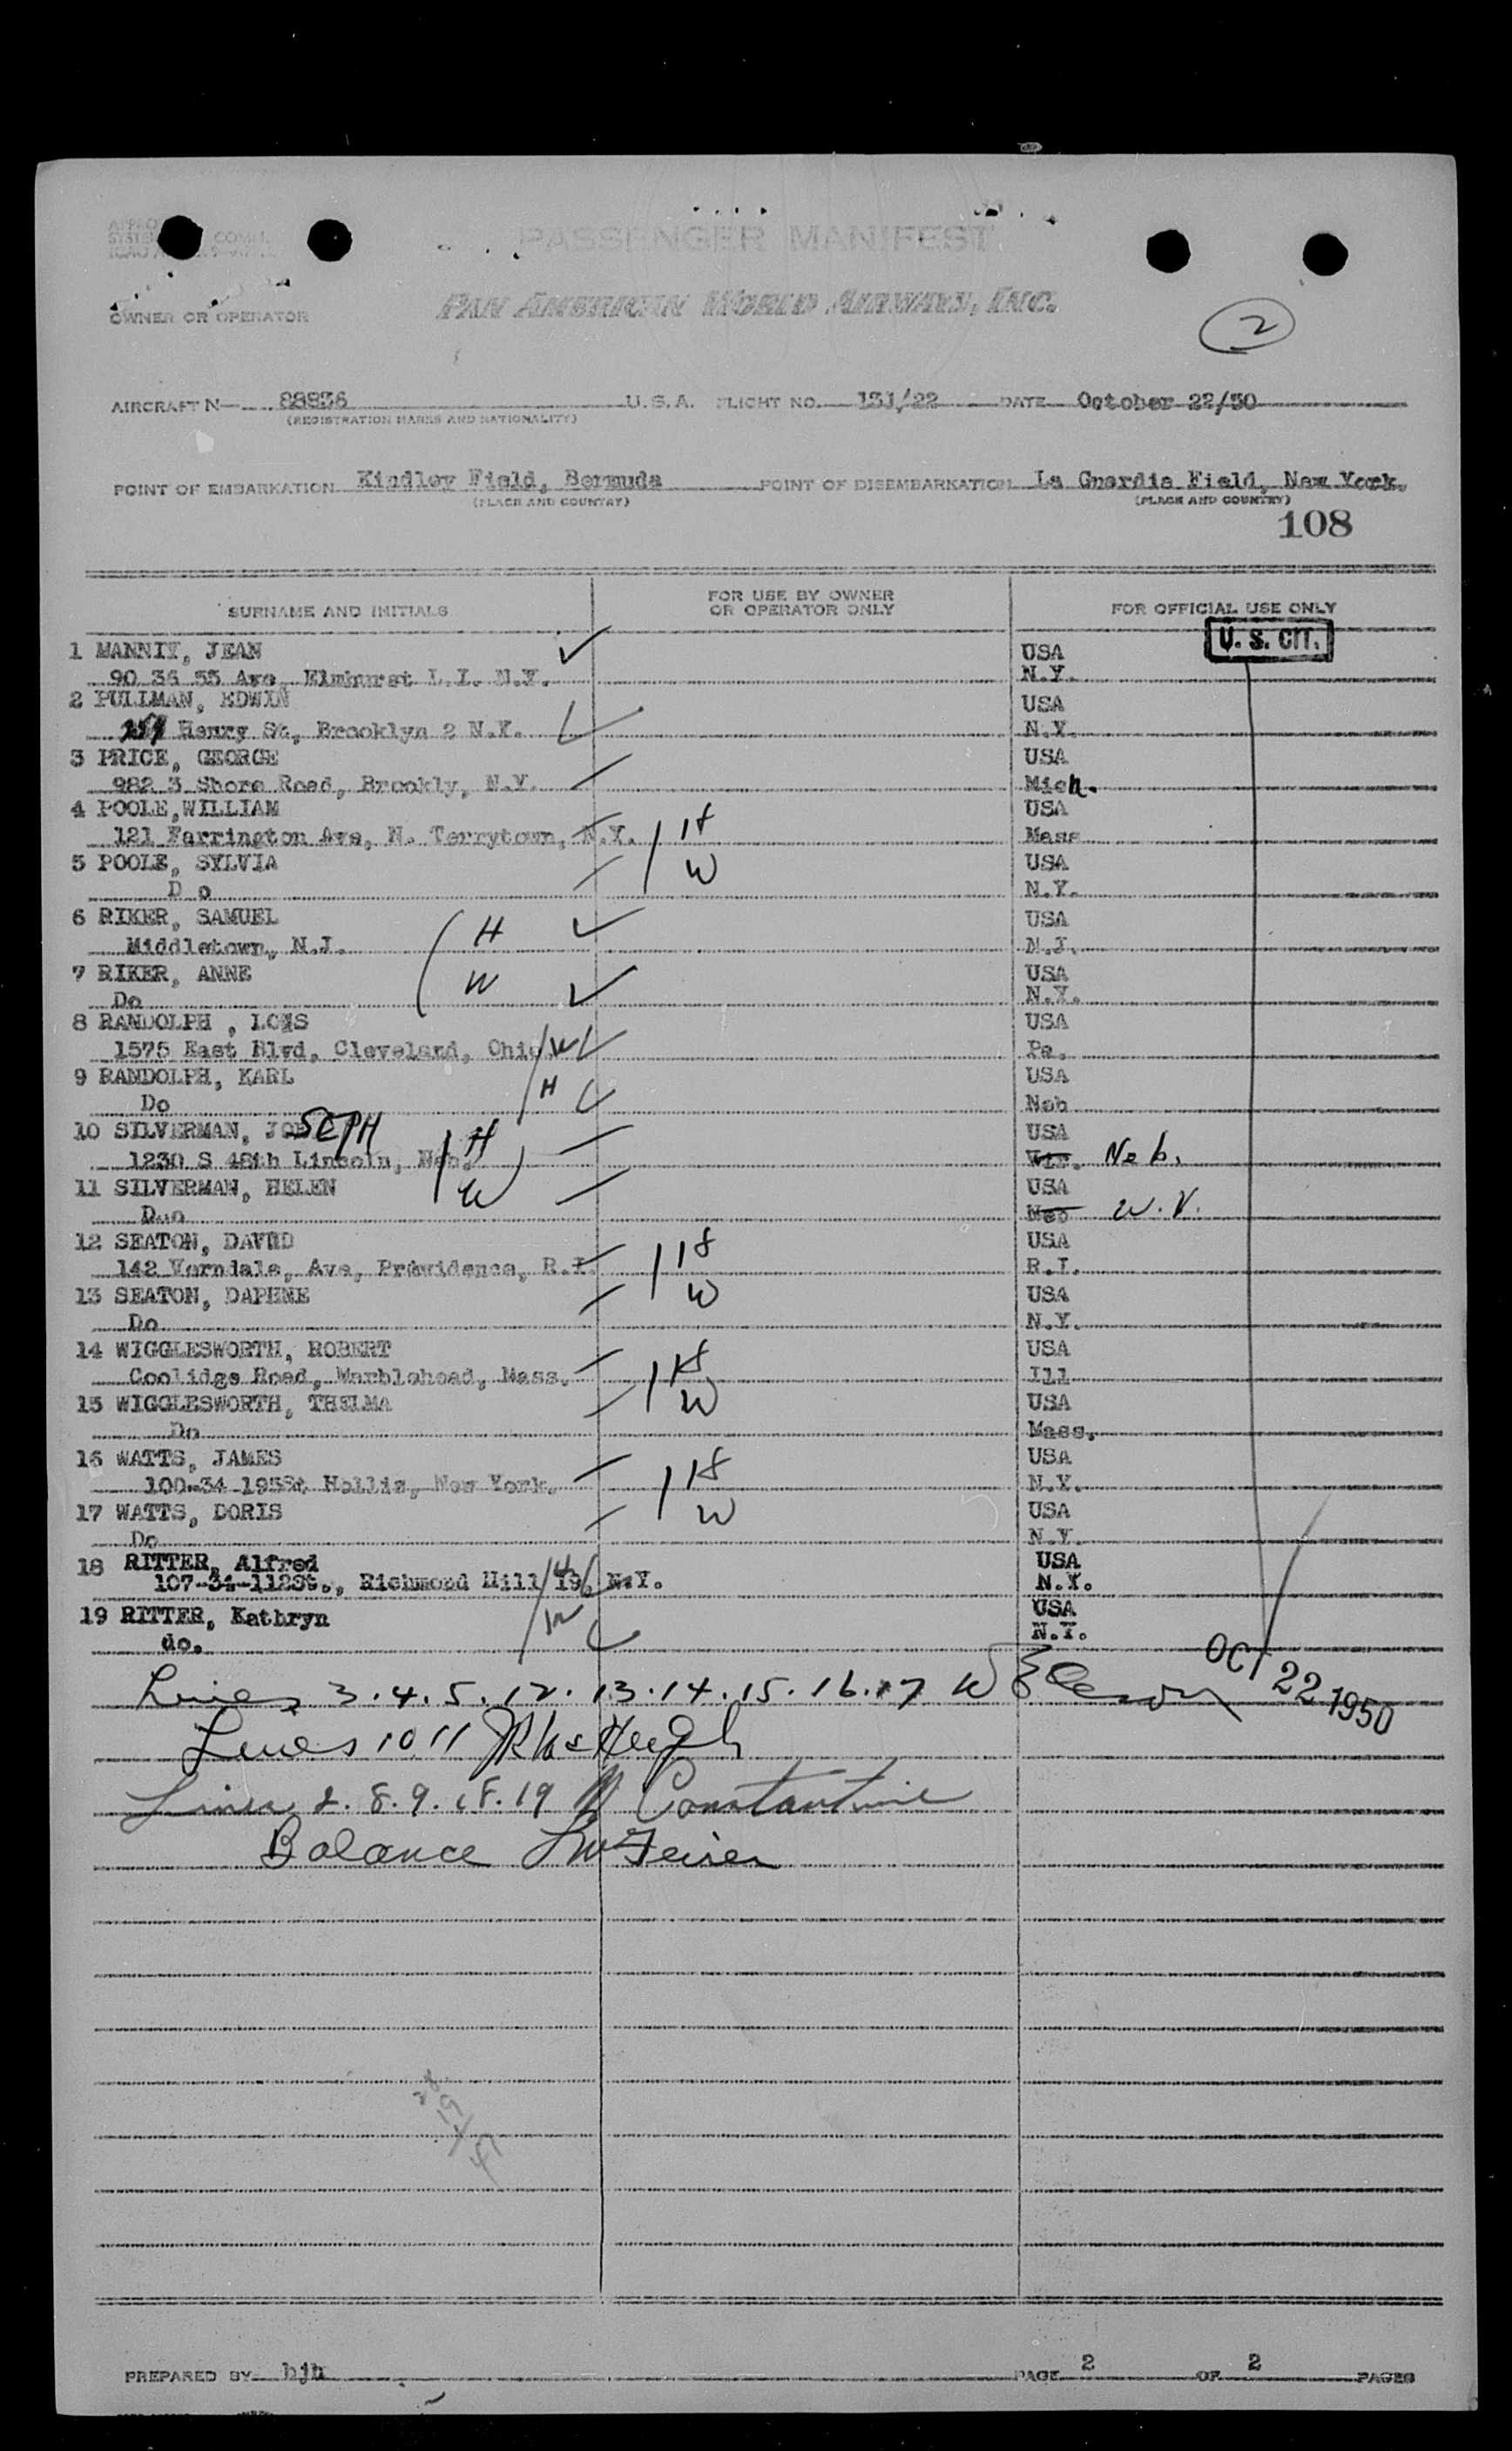 PASSENGER MANIFEST
OWNER OR OPERATOR
PAN AMERICAN WORLD AIRWAYS, INC.
2
AIRCRAFT N- 88836 U. S. A. FLIGHT NO. 131/22 DATE October 22/50
(REGISTRATION MARKS AND NATIONALITY)
POINT OF EMBARKATION Kindley Field, Bermuda POINT OF DISEMBARKATION La Guardia Field, New York.
(PLACE AND COUNTRY) (PLACE AND COUNTRY)
108
SURNAME AND INITIALS FOR USE BY OWNER OR OPERATOR ONLY FOR OFFICIAL USE ONLY
U. S. CIT.
1 MANNIX, JEAN USA
90 36 55 Ave Elmhurst L.I. N.Y. N.Y.
2 PULLMAN, EDWIN USA
Henry St, Brooklyn 2 N.Y. N.Y.
3 PRICE, GEORGE USA
982 3 Shore Road, Brookly, N.Y. Mich.
4 POOLE, WILLIAM H USA
121 Farrington Ave, N. Terrytown, N.Y. Mass
5 POOLE, SYLVIA W USA
D o N.Y.
6 RIKER, SAMUEL H USA
Middletown, N.J. N.J.
7 RIKER, ANNE W USA
Do N.Y.
8 RANDOLPH , LOIS USA
1575 East Blvd, Cleveland, Ohio W Pa.
9 RANDOLPH, KARL H USA
Do Neb
10 SILVERMAN, JOSEPH H USA
1230 S 48th Lincoln, Neb. Neb.
11 SILVERMAN, HELEN W USA
Duo W. V.
12 SEATON, DAVID H USA
142 Verndale, Ave, Providence, R.I. R.I.
13 SEATON, DAPHNE W USA
Do N.Y.
14 WIGGLESWORTH, ROBERT H USA
Coolidge Road, Marblehead, Mass. Ill
15 WIGGLESWORTH, THELMA W USA
Do Mass.
16 WATTS, JAMES H USA
100-34 195St Hollis, New York. N.Y.
17 WATTS, DORIS W USA
Do N.Y.
18 RITTER, Alfred USA
107-34-112St., Richmond Hill 19, N.Y. N.Y.
19 RITTER, Kathryn USA
do. N.Y.
OCT 22 1950
Lines 3.4.5.12.13.14.15.16.17
Lines 10 11
Lines 2.8.9.18.19 Constantine
Balance
28
19
47
PREPARED BY bjh PAGE 2 OF 2 PAGES